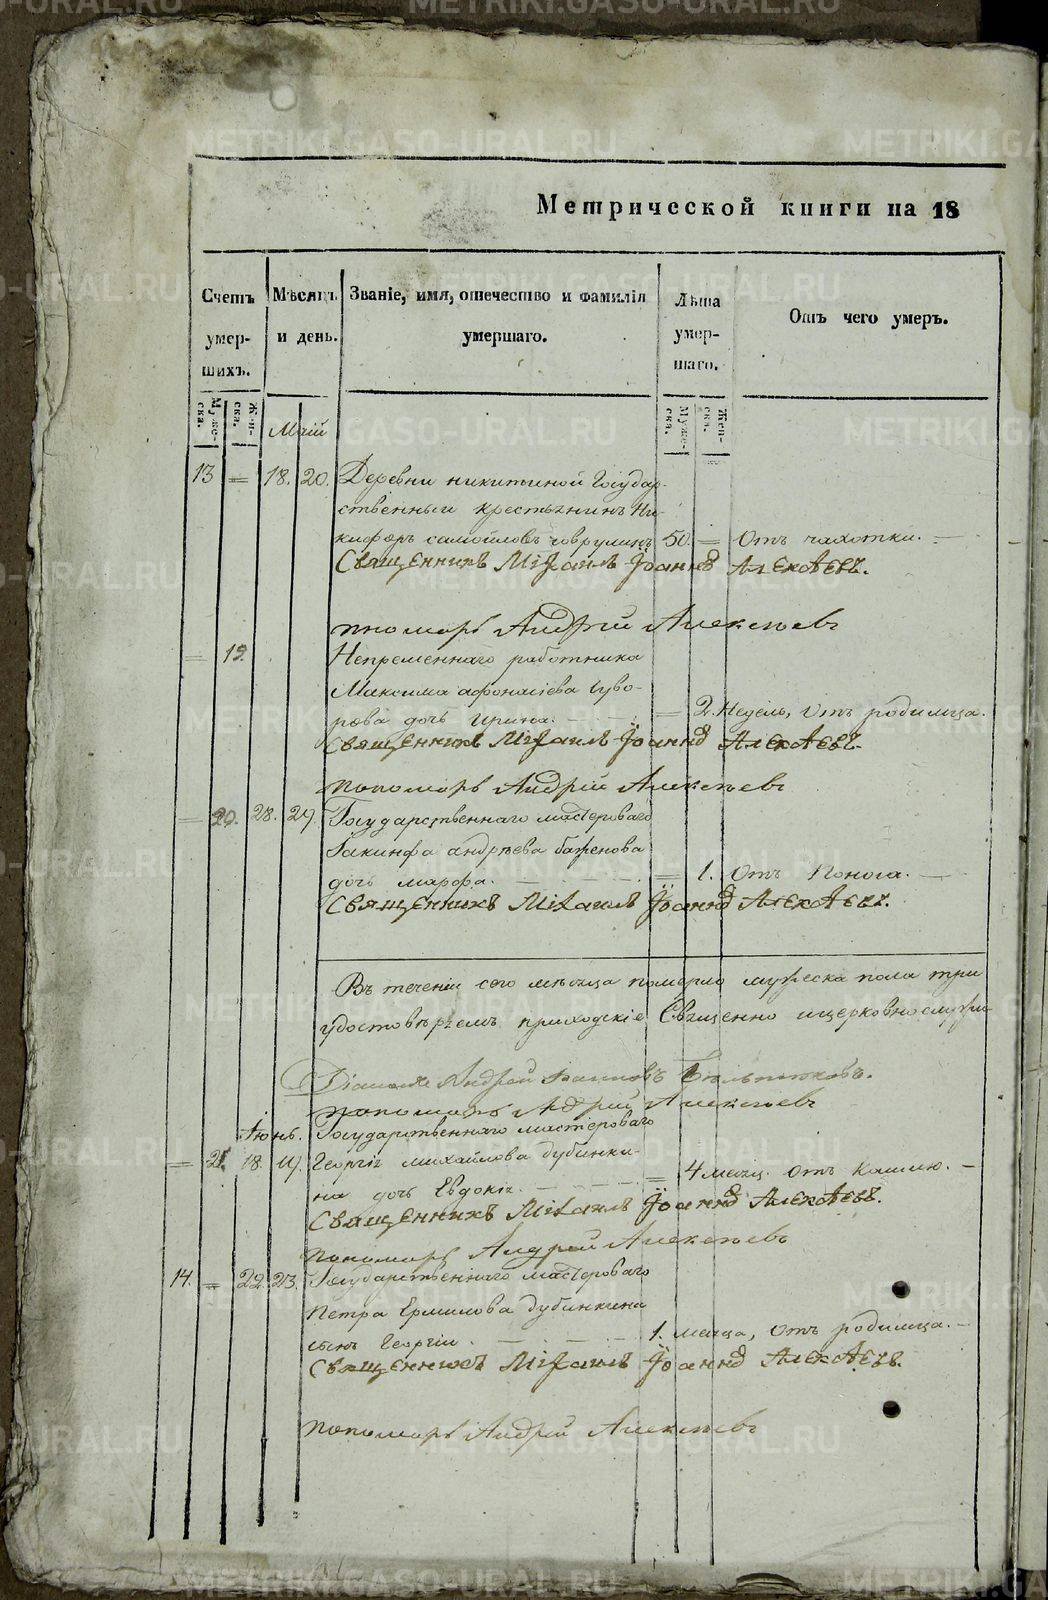 Метрической книги на 18
Счетъ умер-шихъ.
Муже-ска.
Жен-ска.
Мѣсяцъ и день.
Званіе, имя, отечество и фамилія умершаго.
Лѣта умер-шаго.
Муже-ска.
Жен-ска.
Отъ чего умеръ.
Маій
13 = 18. 20. Деревни никитиной Государ-
ственный крестьянинъ Ни-
кифоръ самойловъ 50. = Отъ чахотки.
Священникъ Михаилъ Іоаннъ Алексѣевъ.
пономарь Андрей Алексѣевъ
= 19. Непременнаго работника
Максима афонасіева Суво-
рова дочь Ирина. = 2. Недель, Отъ родимца.
Священникъ Михаилъ Іоаннъ Алексѣевъ.
пономарь Андрей Алексѣевъ
= 20. 28. 29. Государственнаго мастероваго
Іакинфа андрѣева баженова
дочь марфа. = 1. Отъ Поноса.
Священникъ Михаилъ Іоаннъ Алексѣевъ.
Въ теченіи сего мѣсяца померло мужеска пола три
удостовѣряемъ приходскіе Священно ицерковнослужи
Діаконъ Андрей
пономарь Андрей Алексѣевъ
Іюнь. Государственнаго мастероваго
= 21. 18. 19. Георгія михайлова дубинки-
на дочь Евдокія. = 4 месяц. Отъ Кашлю.
Священникъ Михаилъ Іоаннъ Алексѣевъ.
пономарь Андрей Алексѣевъ
14. = 22. 23. Государственнаго мастероваго
Петра Ермилова дубинкина
сынъ Георгіи. 1. месца, Отъ родимца.
Священникъ Михаилъ Іоаннъ Алексѣевъ.
пономарь Андрей Алексѣевъ
METRIKI.GASO-URAL.RU